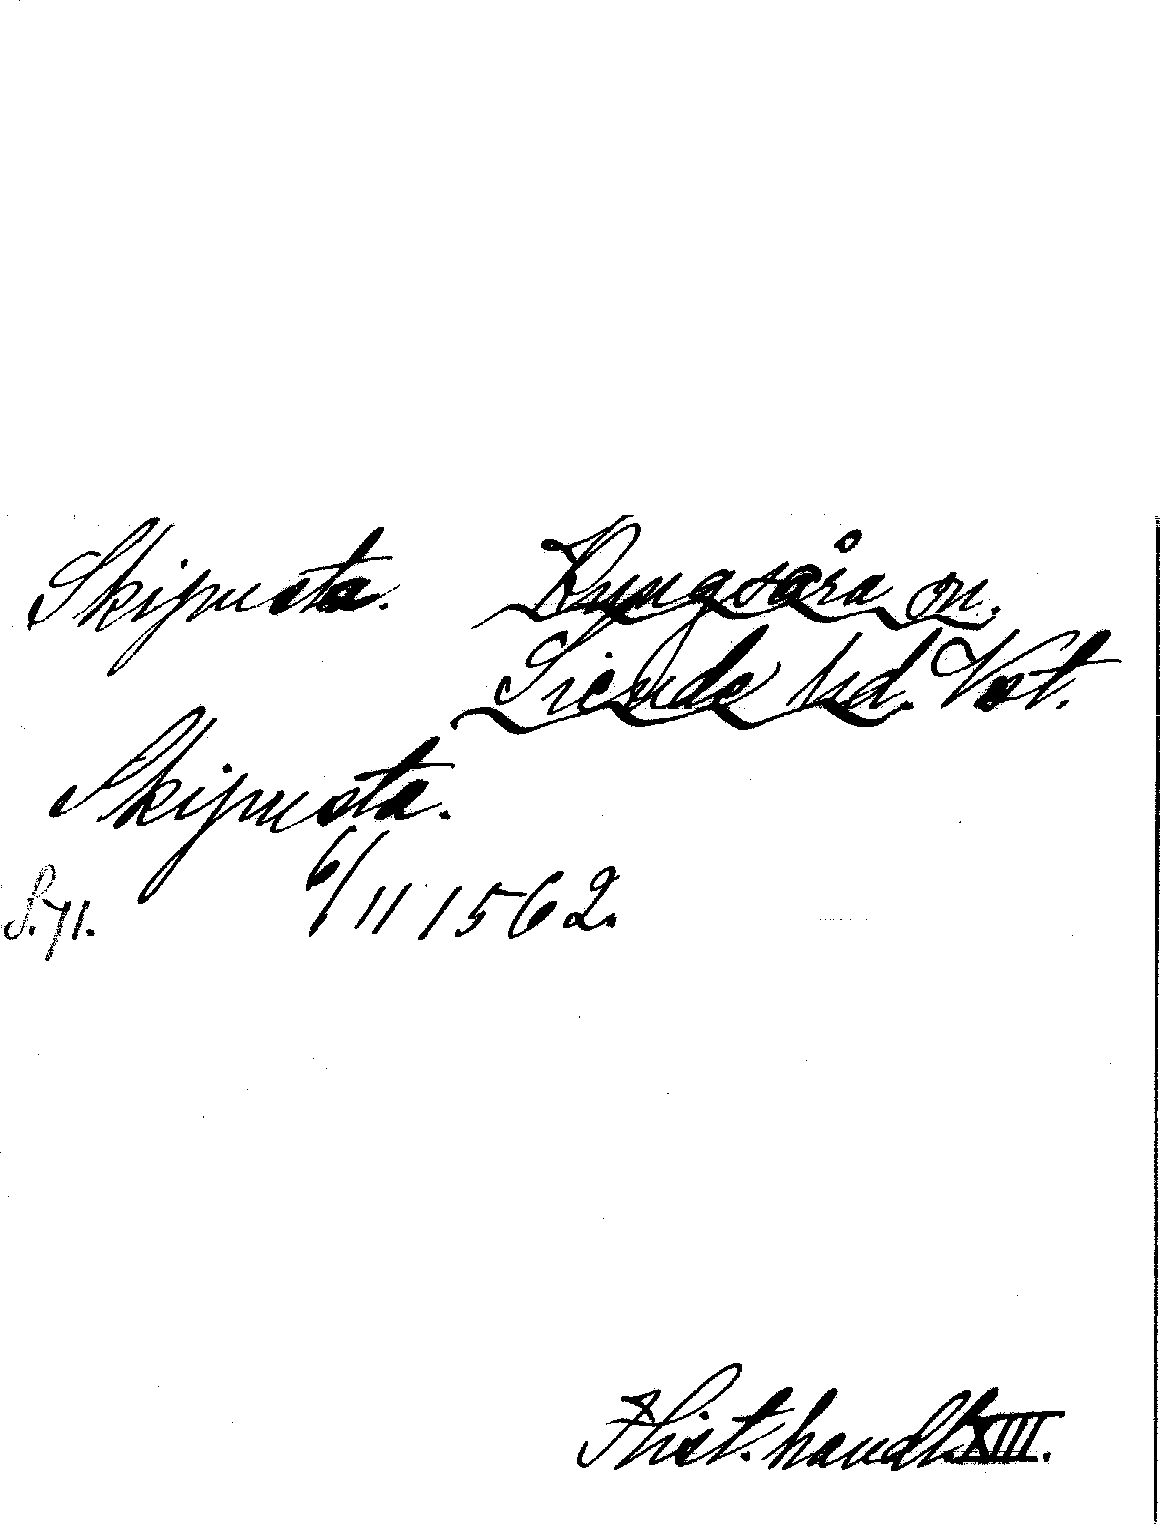 Skipusta. Kungsåra sn.
Siende hd. Vst.
Skipusta.
S. 71. 6/11 1562.
Hist. handl. XIII.